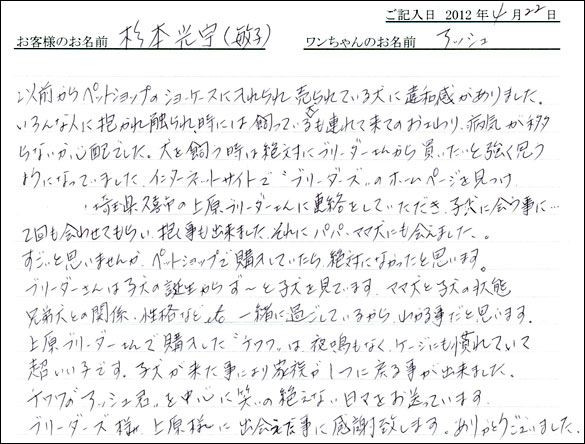 ご記入日 2012年4月22日
お客様のお名前 杉本光宇(敏子) ワンちゃんのお名前 アッシュ
以前からペットショップのショーケースに入れられ売られている犬に違和感がありました。
いろんな人に抱かれ触られ時には飼っている犬も連れて来てのお出入り、病気が移
らないか心配でした。犬を飼う時は絶対にブリーダーさんから買いたいと強く思う
ようになっていました。インターネットサイトで"ブリーダーズ"のホームページを見つけ
埼玉県久喜市の上原ブリーダーさんに連絡をしていただき、子犬に会う事に…
2回も会わせてもらい、抱く事も出来ました。それにパパ、ママ犬にも会えました、。
すごいと思いませんか、ペットショップで購入していたら絶対になかったと思います。
ブリーダーさんは子犬の誕生からず〜と子犬を見ています。ママ犬と子犬の状態
兄弟犬との関係、性格などetc 一緒に過ごしているから、わかる事だと思います。
上原ブリーダーさんで購入した"チワワ"は、夜鳴もなく、ケージにも慣れていて
超いい子です。子犬が来た事により家族が1つに戻る事が出来ました。
チワワの"アッシュ君"を中心に笑いの絶えない日々をお送っています。
ブリーダーズ様、上原様に出会えた事に感謝致します。ありがとうございました。